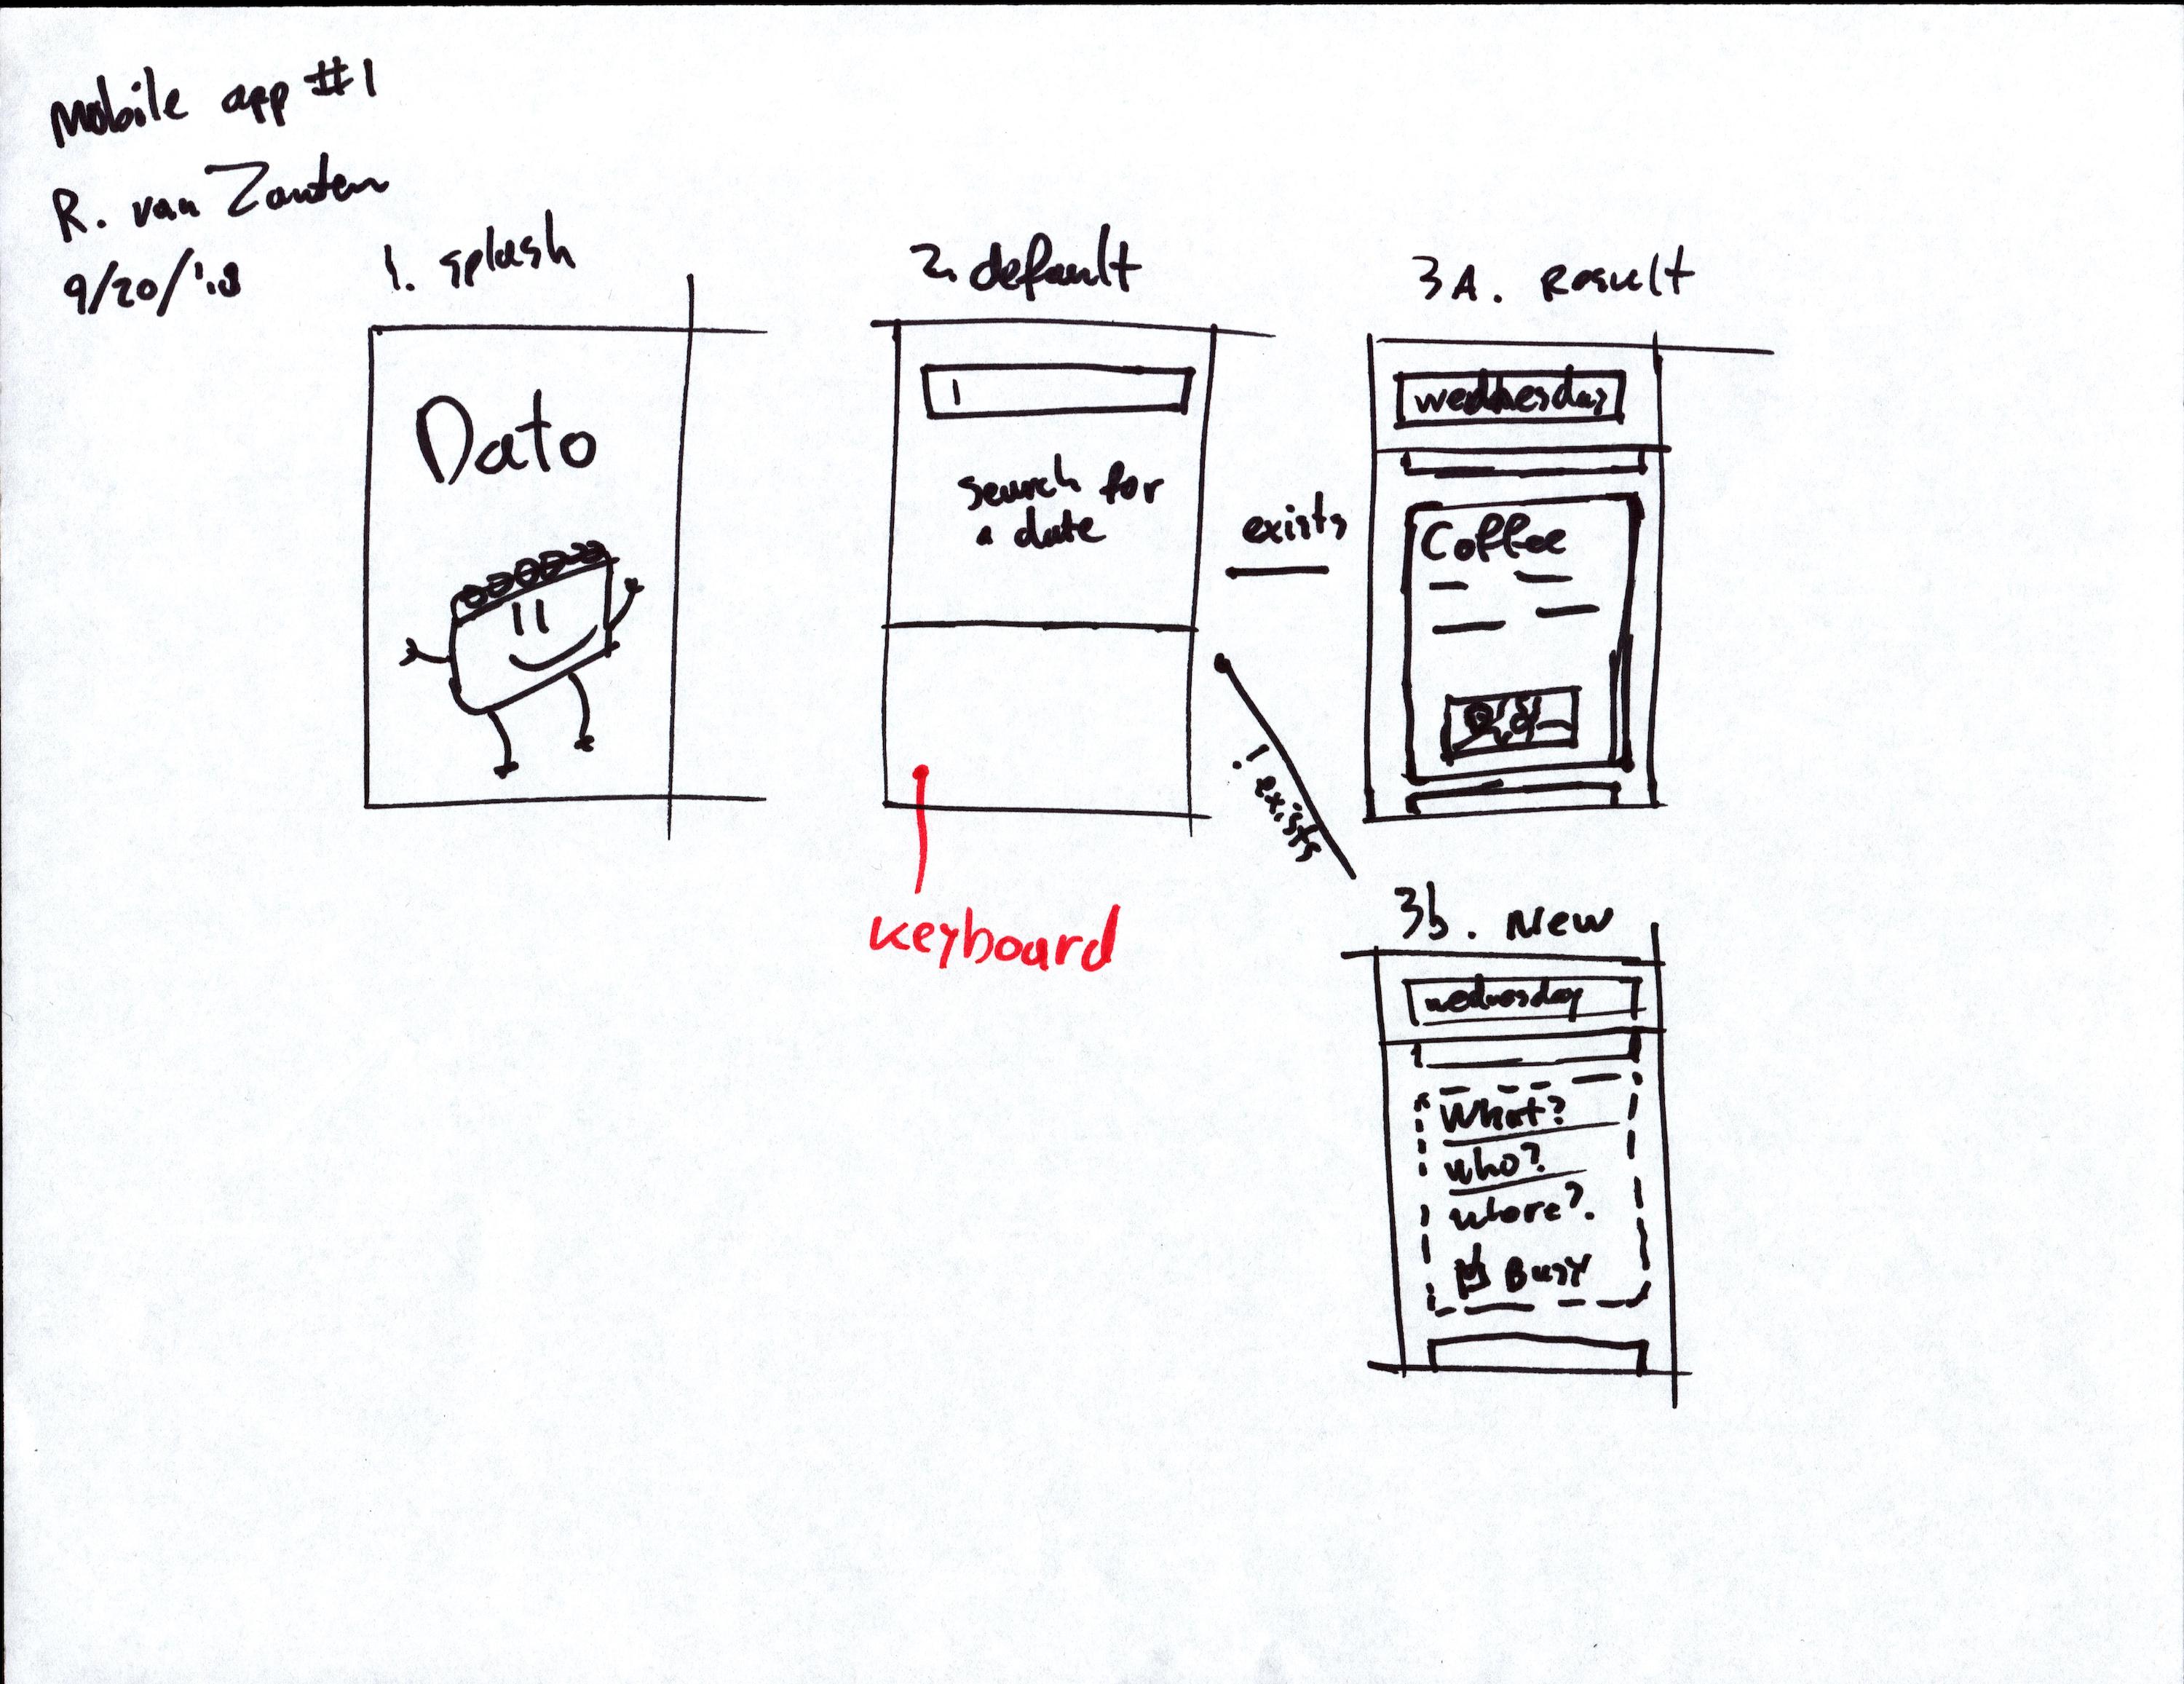 Mobile app #1
R. van Zanten
9/20/'18
1. splash
Dato
2. default
search for
a date
keyboard
exists
! exists
3A. Result
wednesday
Coffee
3b. New
wednesday
What?
who?
where?
Busy